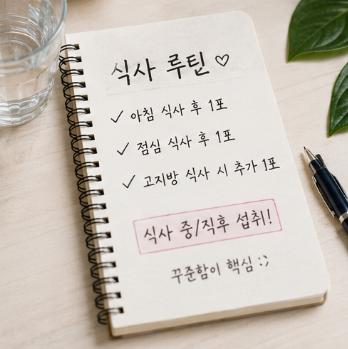 식사 루틴 ♡
✓ 아침 식사 후 1포
✓ 점심 식사 후 1포
✓ 고지방 식사 시 추가 1포
식사 중/직후 섭취!
꾸준함이 핵심 :)